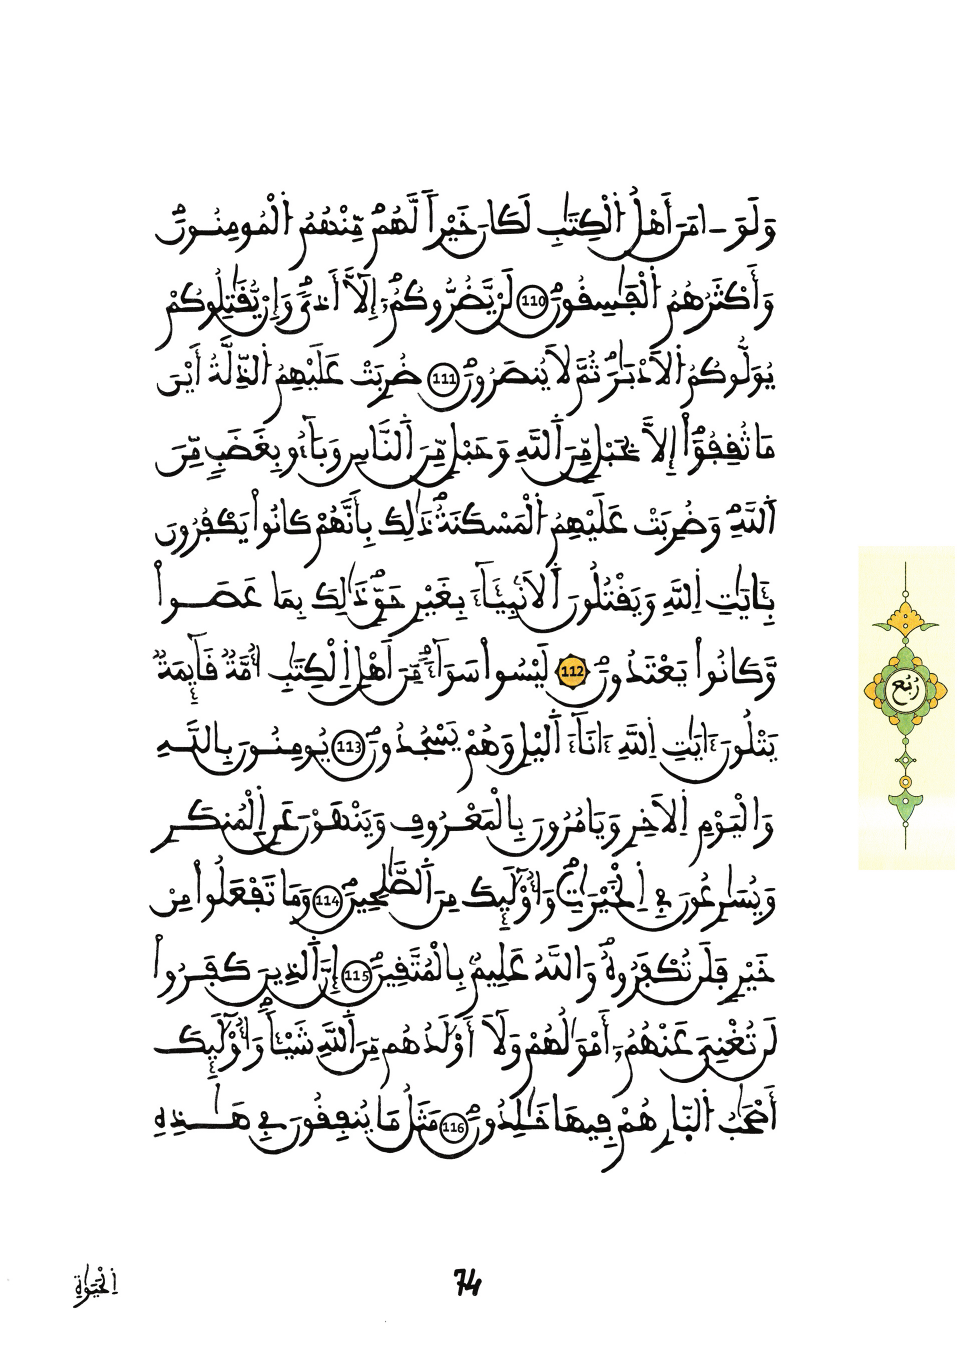 وَلَوَ ـ امَنَ أَهْلُ اُ۬لْكِتَٰبِ لَكَانَ خَيْراٗ لَّهُمۖ مِّنْهُمُ اُ۬لْمُومِنُونَۖ
وَأَكْثَرُهُمُ اُ۬لْفَٰسِقُونَۖ 110 لَنْ يَّضُرُّوكُمُۥٓ إِلَّآ أَذىٗۖ وَإِنْ يُّقَٰتِلُوكُمْ
يُوَلُّوكُمُ اُ۬لَادْبَٰرَۖ ثُمَّ لَا يُنصَرُونَۖ 111 ضُرِبَتْ عَلَيْهِمُ اُ۬لذِّلَّةُ أَيْنَ
مَا ثُقِفُوٓاْ إِلَّا بِحَبْلٖ مِّنَ اَ۬للَّهِ وَحَبْلٖ مِّنَ اَ۬لنَّاسِ وَبَآءُو بِغَضَبٖ مِّنَ
اَ۬للَّهِۖ وَضُرِبَتْ عَلَيْهِمُ اُ۬لْمَسْكَنَةُۖ ذَٰلِكَ بِأَنَّهُمْ كَانُواْ يَكْفُرُونَ
بِـَٔايَٰتِ اِ۬للَّهِ وَيَقْتُلُونَ اَ۬لَانۢبِيَآءَ بِغَيْرِ حَقّٖۖ ذَٰلِكَ بِمَا عَصَواْ
وَّكَانُواْ يَعْتَدُونَۖ 112 لَيْسُواْ سَوَآءٗۖ مِّنَ اَهْلِ اِ۬لْكِتَٰبِ أُمَّةٞ قَآئِمَةٞ
يَتْلُونَ ءَايَٰتِ اِ۬للَّهِ ءَانَآءَ اَ۬ليْلِ وَهُمْ يَسْجُدُونَۖ 113 يُومِنُونَ بِاللَّهِ
وَالْيَوْمِ اِ۬لَاخِرِ وَيَامُرُونَ بِالْمَعْرُوفِ وَيَنْهَوْنَ عَنِ اِ۬لْمُنكَرِ
وَيُسَٰرِعُونَ فِے اِ۬لْخَيْرَٰتِۖ وَأُوْلَٰٓئِكَ مِنَ اَ۬لصَّٰلِحِينَۖ 114 وَمَا تَفْعَلُواْ مِنْ
خَيْرٖ فَلَن تُكْفَرُوهُۖ وَاللَّهُ عَلِيمُۢ بِالْمُتَّقِينَۖ 115 إِنَّ اَ۬لذِينَ كَفَرُواْ
لَن تُغْنِيَ عَنْهُمُۥٓ أَمْوَٰلُهُمْ وَلَآ أَوْلَٰدُهُم مِّنَ اَ۬للَّهِ شَيْـٔاٗۖ وَأُوْلَٰٓئِكَ
أَصْحَٰبُ اُ۬لنّ۪ارِ هُمْ فِيهَا خَٰلِدُونَۖ 116 مَثَلُ مَا يُنفِقُونَ فِے هَٰذِهِ
رُبُع
اِ۬لْحَيَوٰةِ
74